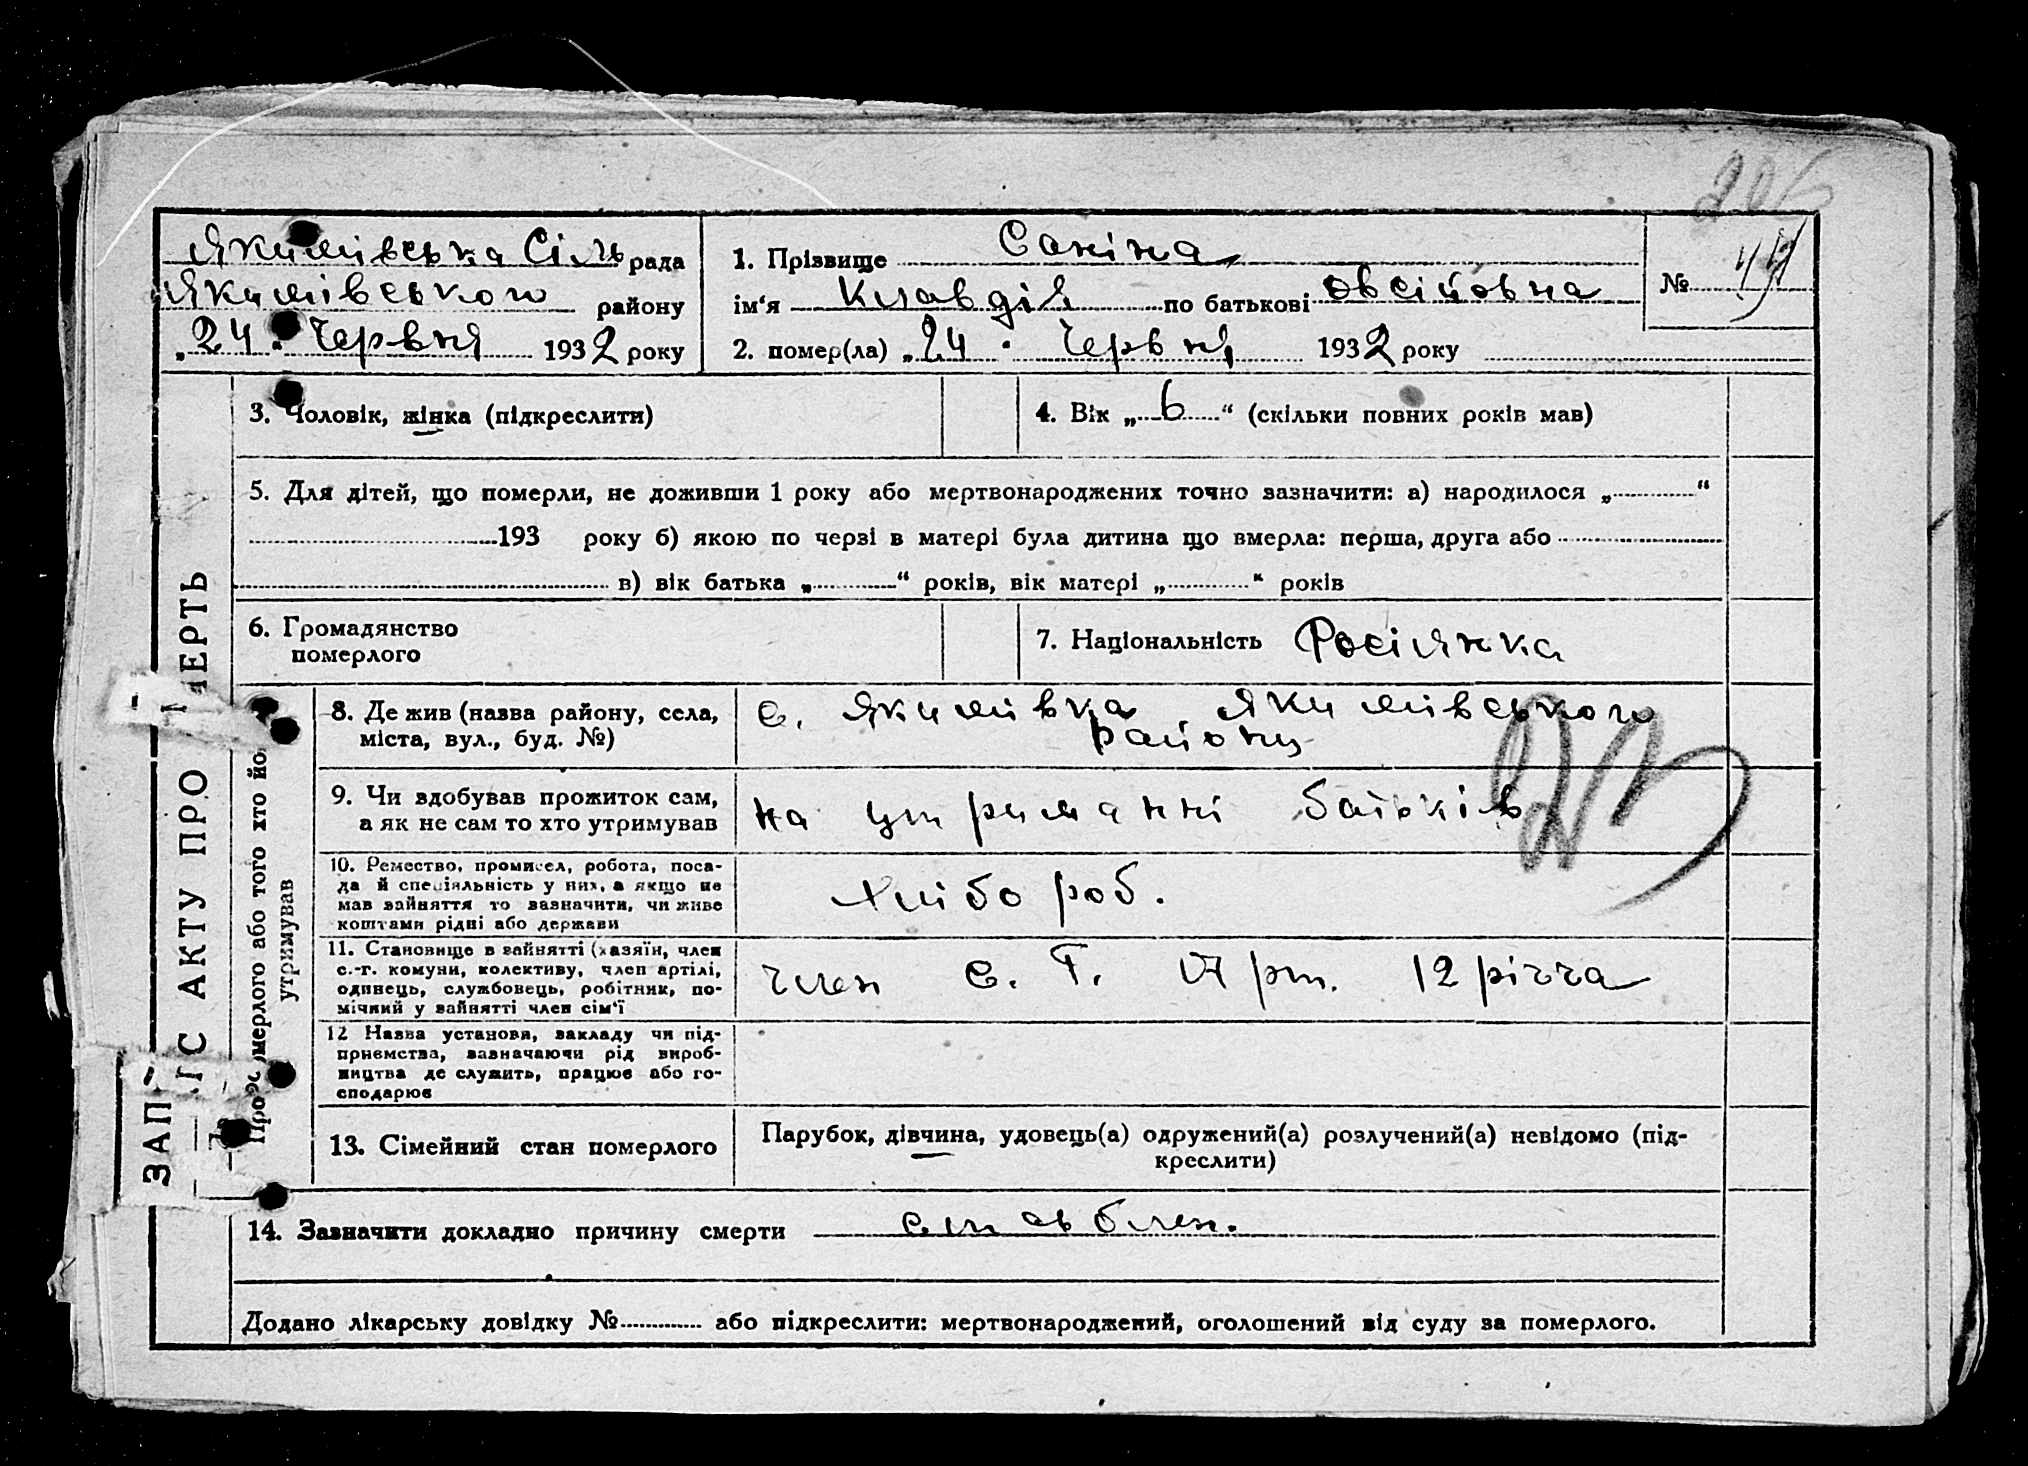 206
Якимівська Сіль рада
Якимівського району
„24“ Червня 1932 року
1. Прізвище Саніна
ім‘я Клавдія по батькові Овсійовна
№
2. помер(ла) „24“ Червня 1932 року
3. Чоловік, жінка (підкреслити)
4. Вік „6“ (скільки повних років мав)
5. Для дітей, що померли, не доживши 1 року або мертвонароджених точно зазначити: а) народилося „ “
193 року б) якою по черзі в матері була дитина що вмерла: перша, друга або
в) вік батька „ “ років, вік матері „ “ років
6. Громадянство
померлого
7. Національність Росіянка
8. Де жив (назва району, села,
міста, вул., буд. №)
с. Якимівка Якимівського
району
9. Чи здобував прожиток сам,
а як не сам то хто утримував
на утриманні батьків
10. Ремество, промисел, робота, поса-
да й спеціяльність у них, а якщо не
мав зайняття то зазначити, чи живе
коштами рідні або держави
Хлібороб.
11. Становище в зайнятті (хазяїн, член
с.-г. комуни, колективу, член артілі,
одинець, службовець, робітник, по-
мічний у зайнятті член сім‘ї
член с. г. Арт. 12 річча
12 Назва установи, закладу чи під-
приємства, зазначаючи рід вироб-
ництва де служить, працює або го-
сподарює
13. Сімейний стан померлого
Парубок, дівчина, удовець(а) одружений(а) розлучений(а) невідомо (під-
креслити)
14. Зазначити докладно причину смерти
Додано лікарську довідку № або підкреслити: мертвонароджений, оголошений від суду за померлого.
ЗАП
ГС АКТУ ПРО МЕРТЬ
Про померлого або того хто йо
утримував